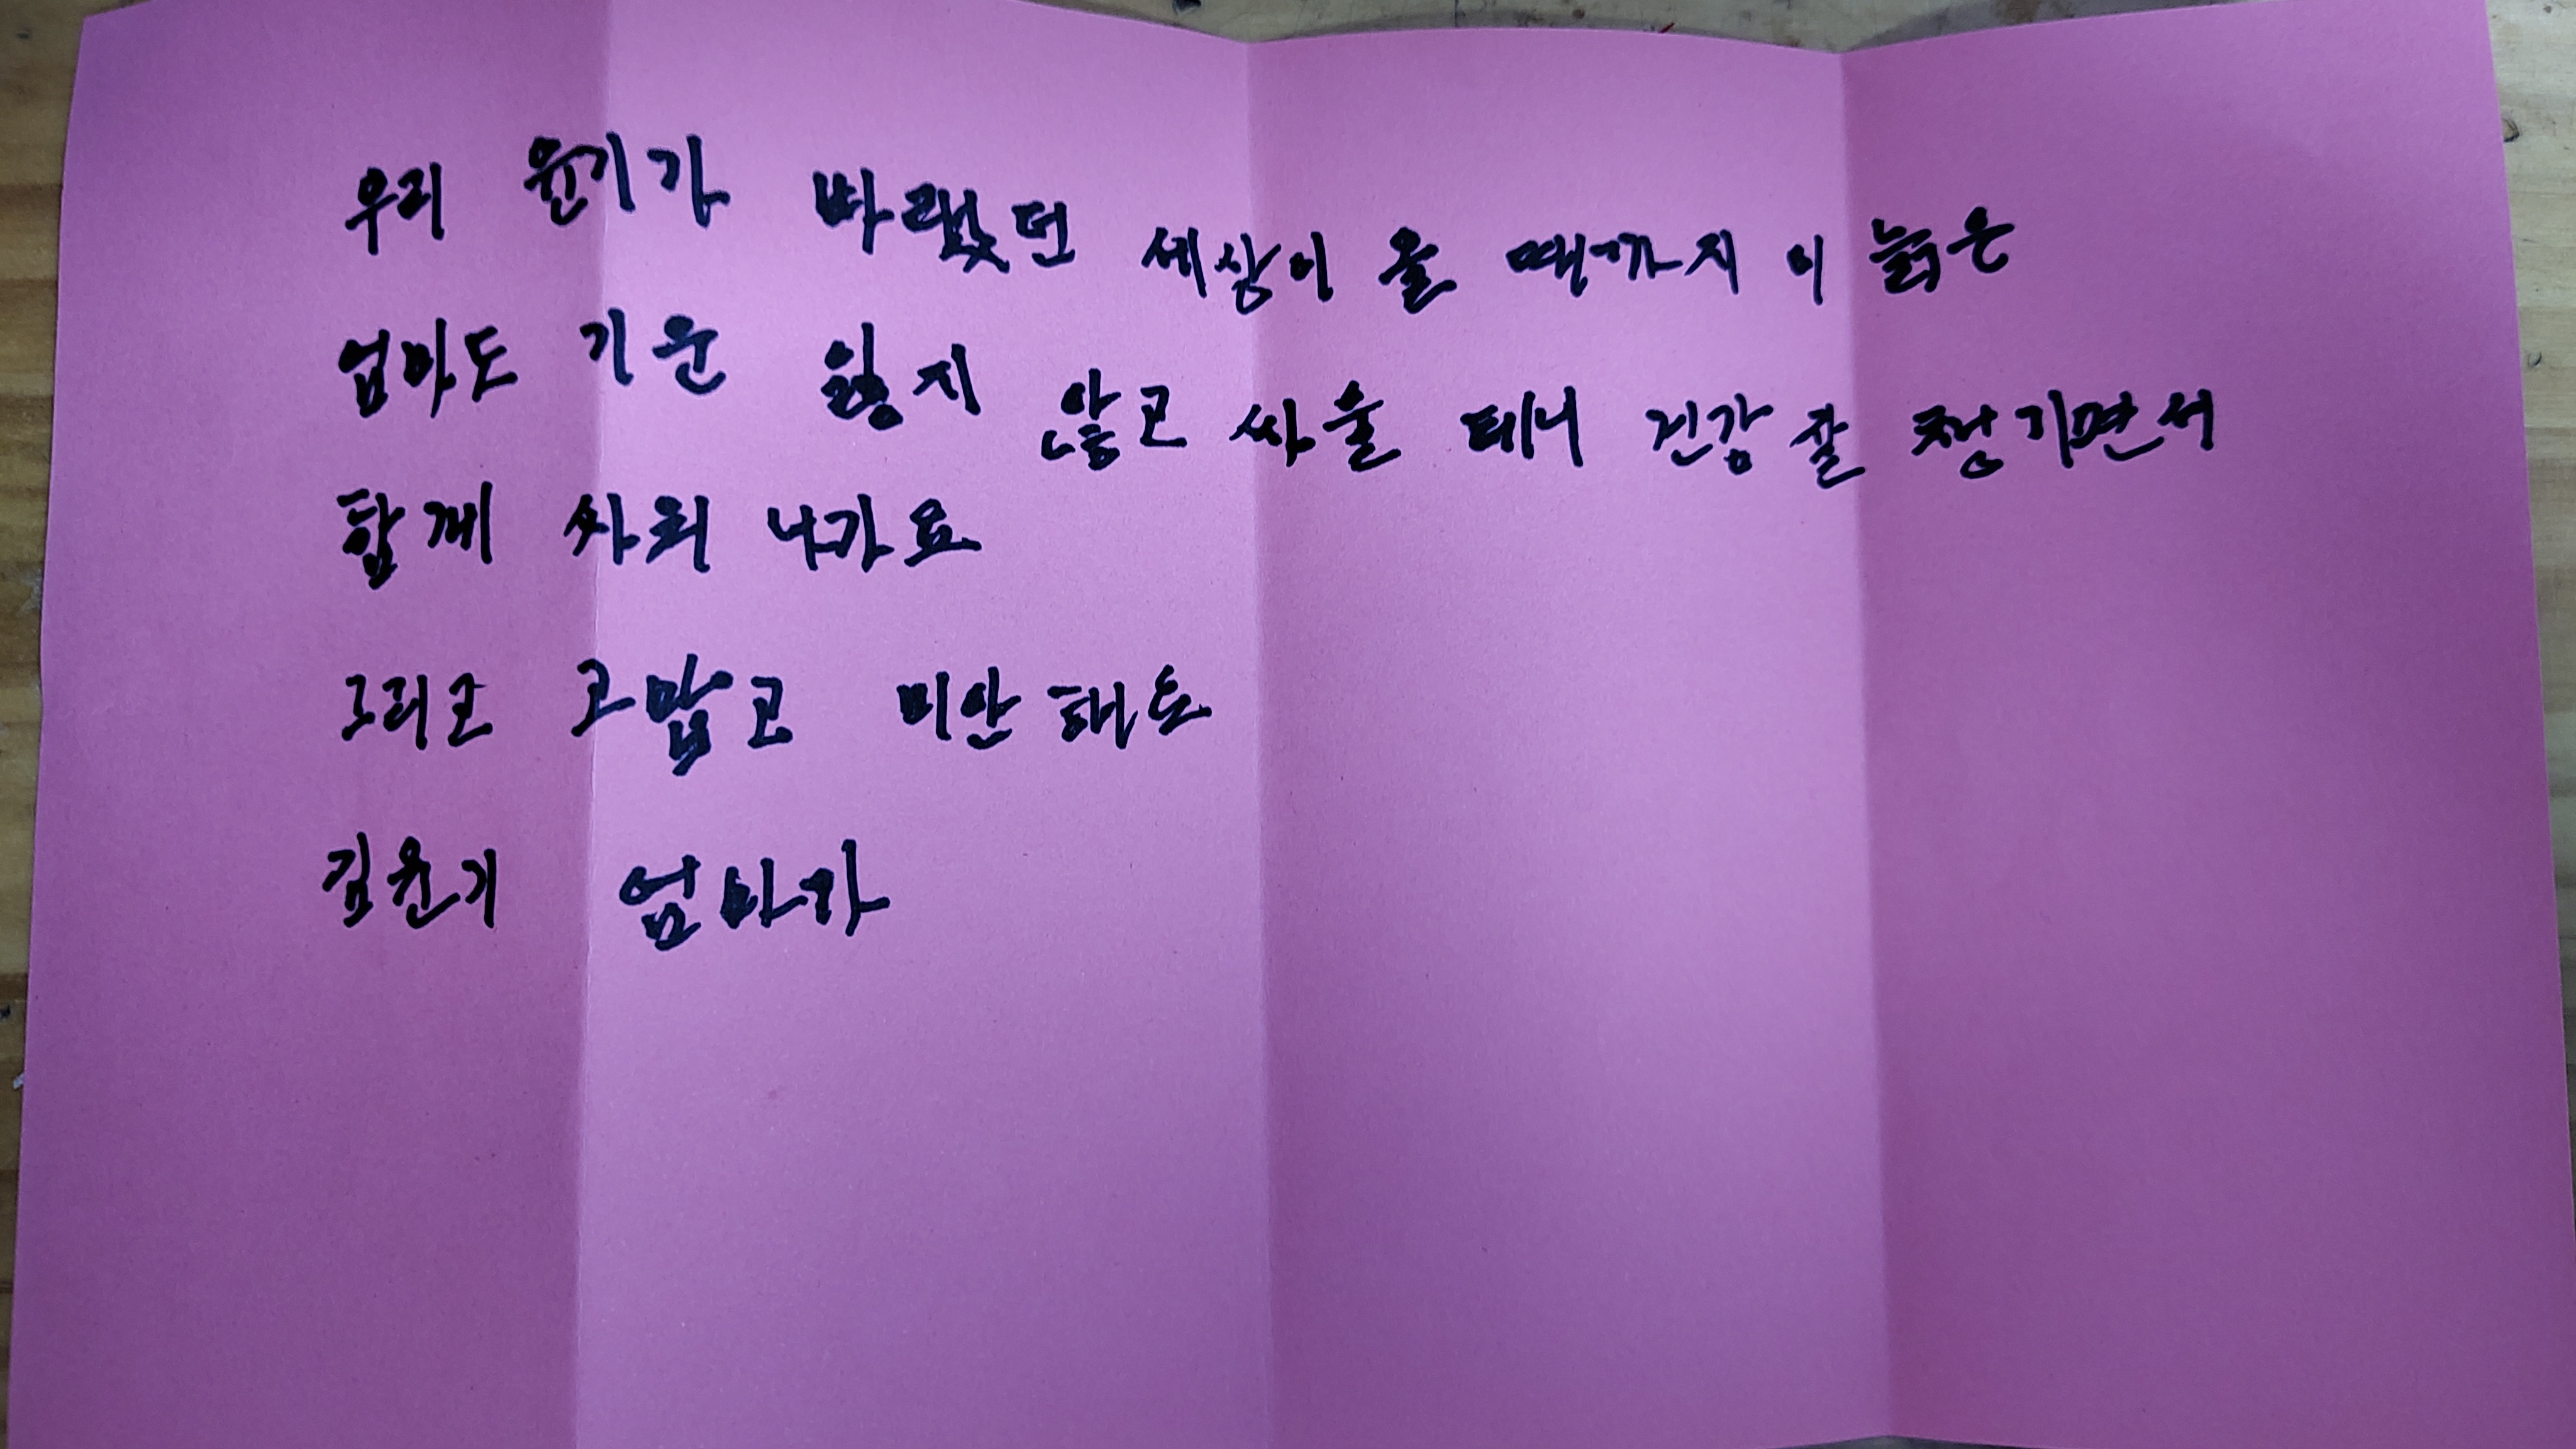 우리 윤기가 바랬던 세상이 올 때까지 이 늙은
엄마도 기운 잃지 않고 싸울 테니 건강 잘 챙기면서
함께 싸워 나가요
그리고 고맙고 미안해요
김윤기 엄마가